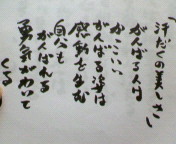 汗だくの美しさ
がんばる人は
かっこいい
がんばる姿は
感動を生む
自分も
がんばれる
勇気がわいて
くる